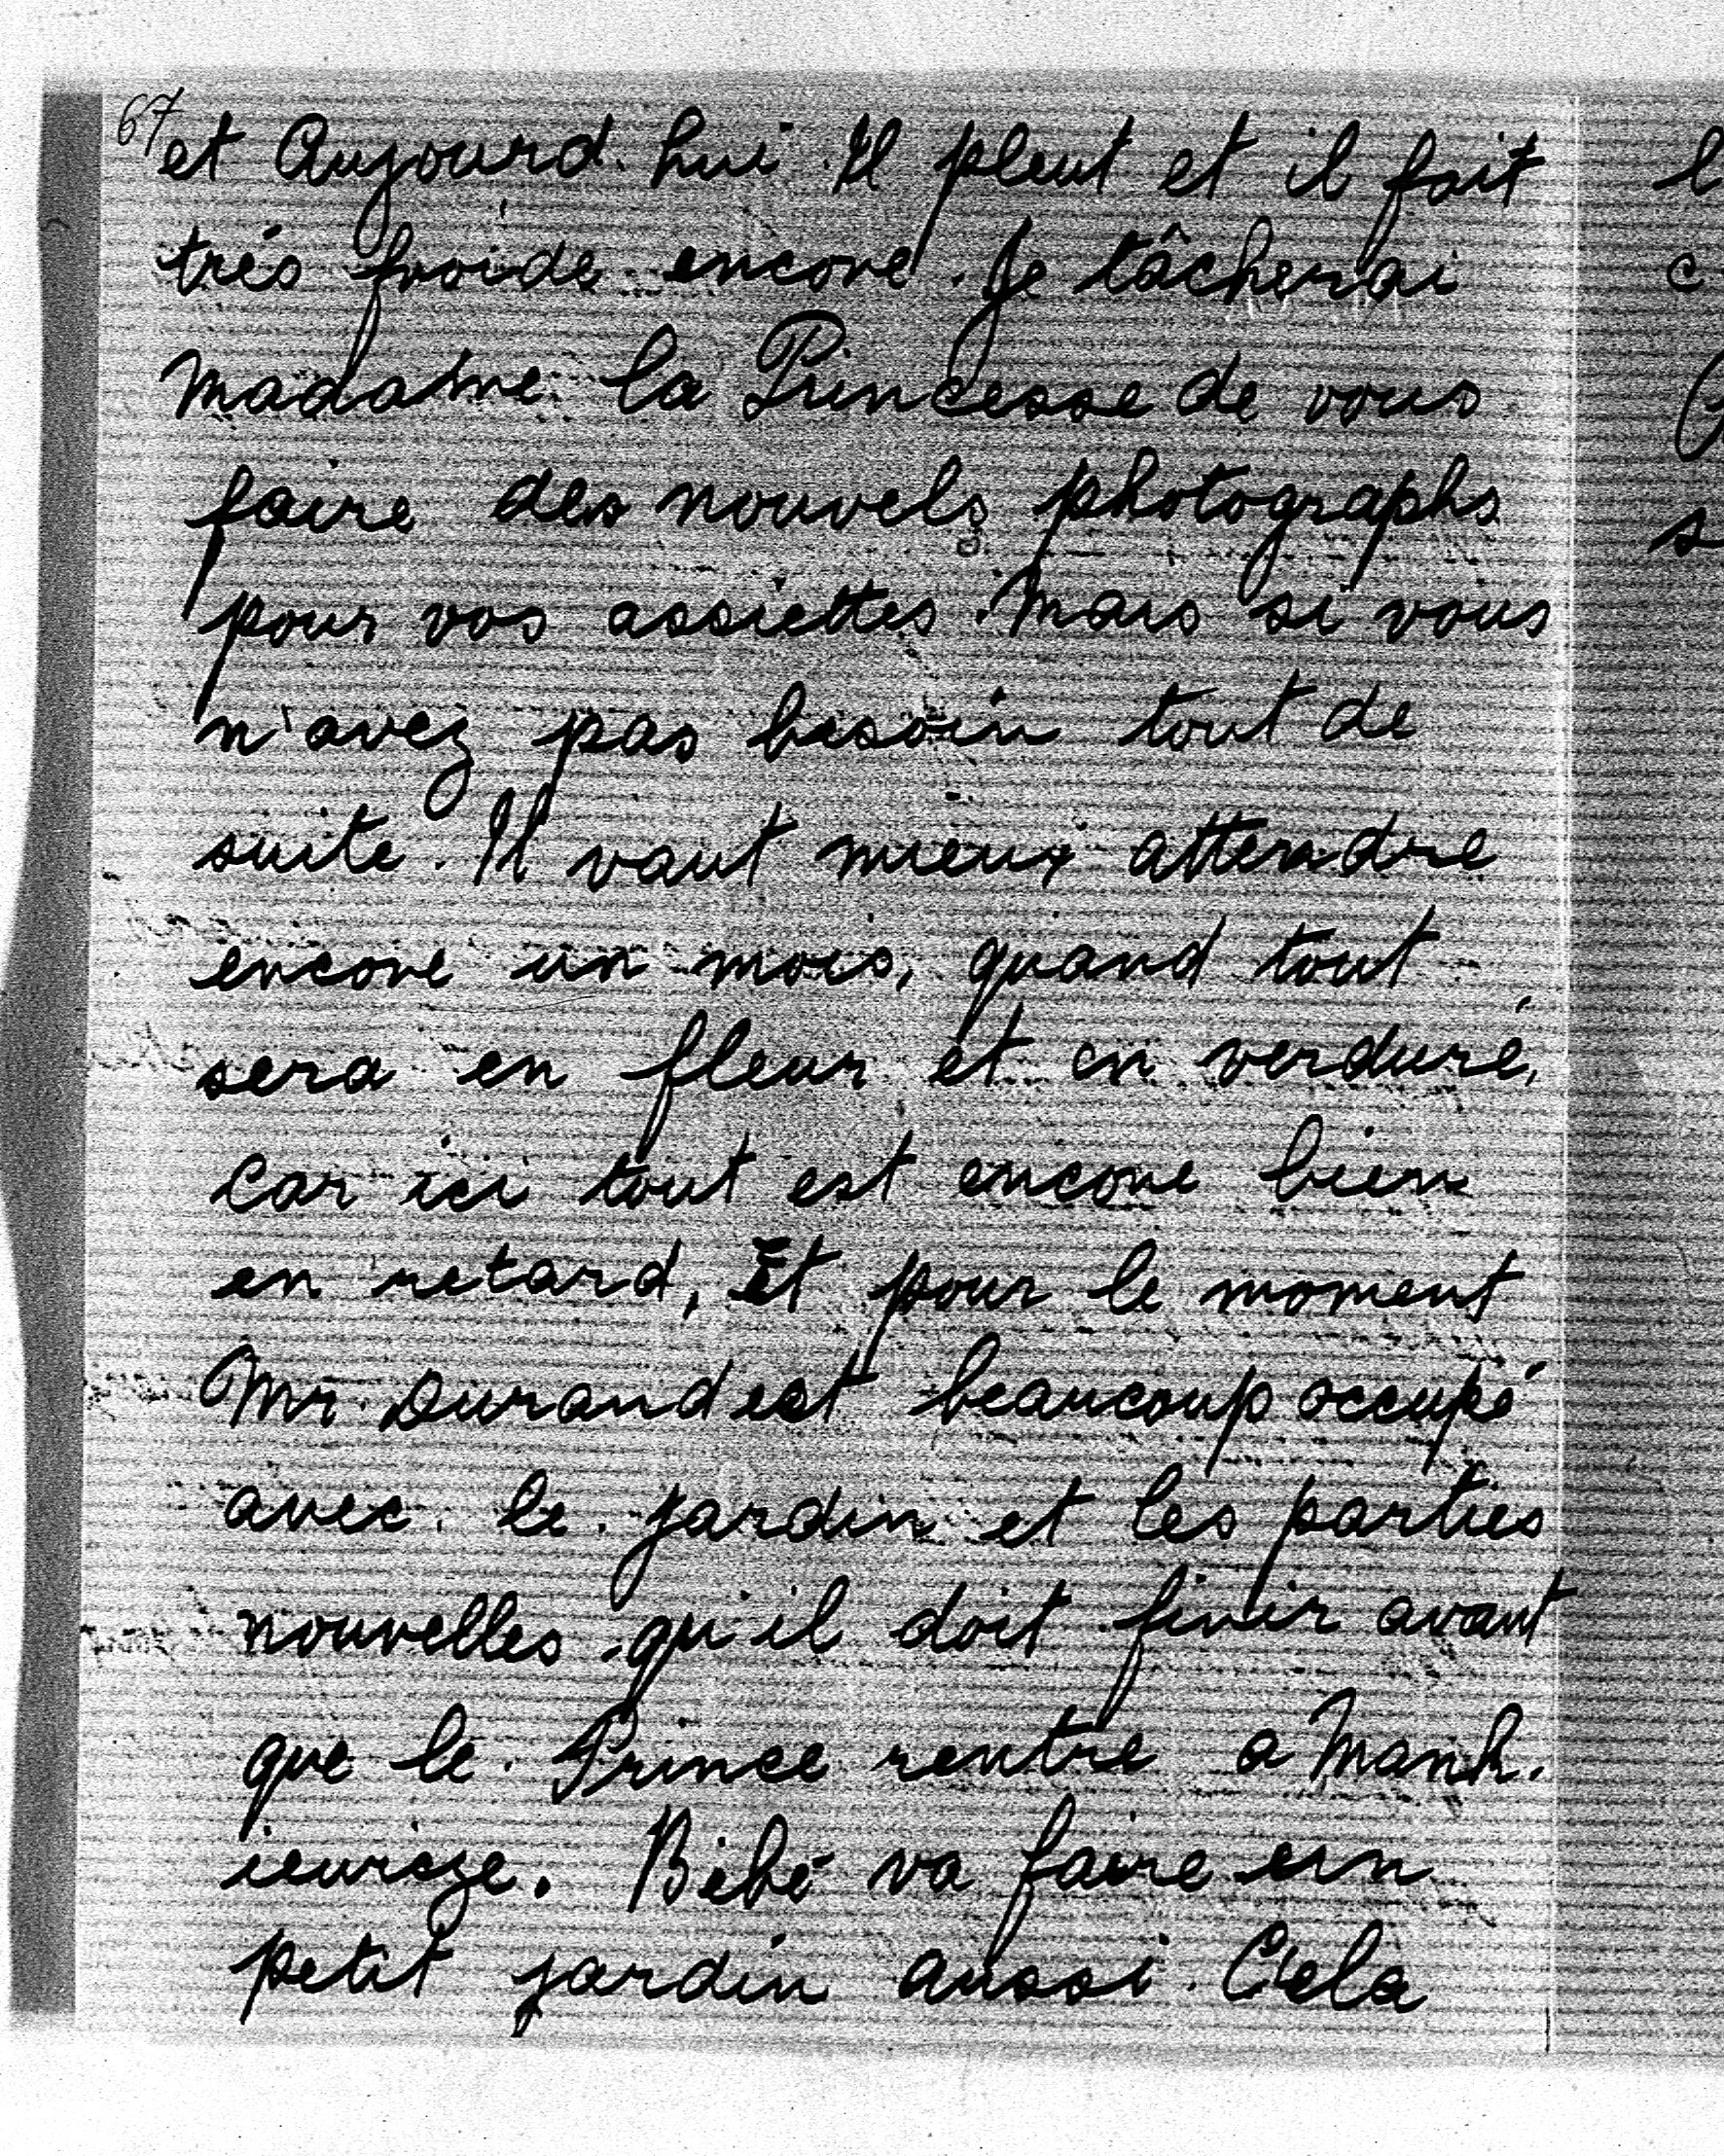 67
et Aujourd'hui. Il pleut et il fait
trés froide encore. Je tâcherai
Madame la Princesse de vous
faire des nouvels photographs
pour vos assiettes. Mais si vous
n'avez pas besoin tout de
suite. Il vaut mieux attendre
encore un mois, quand tout
sera en fleur et en verdure,
car ici tout est encore bien
en retard, Et pour le moment
Mr. Durand est beaucoup occupé
avec le jardin et les parties
nouvelles qu'il doit finir avant
que le Prince rentre a Mank.
iewicze. Bébé va faire un
petit jardin aussi. Cela